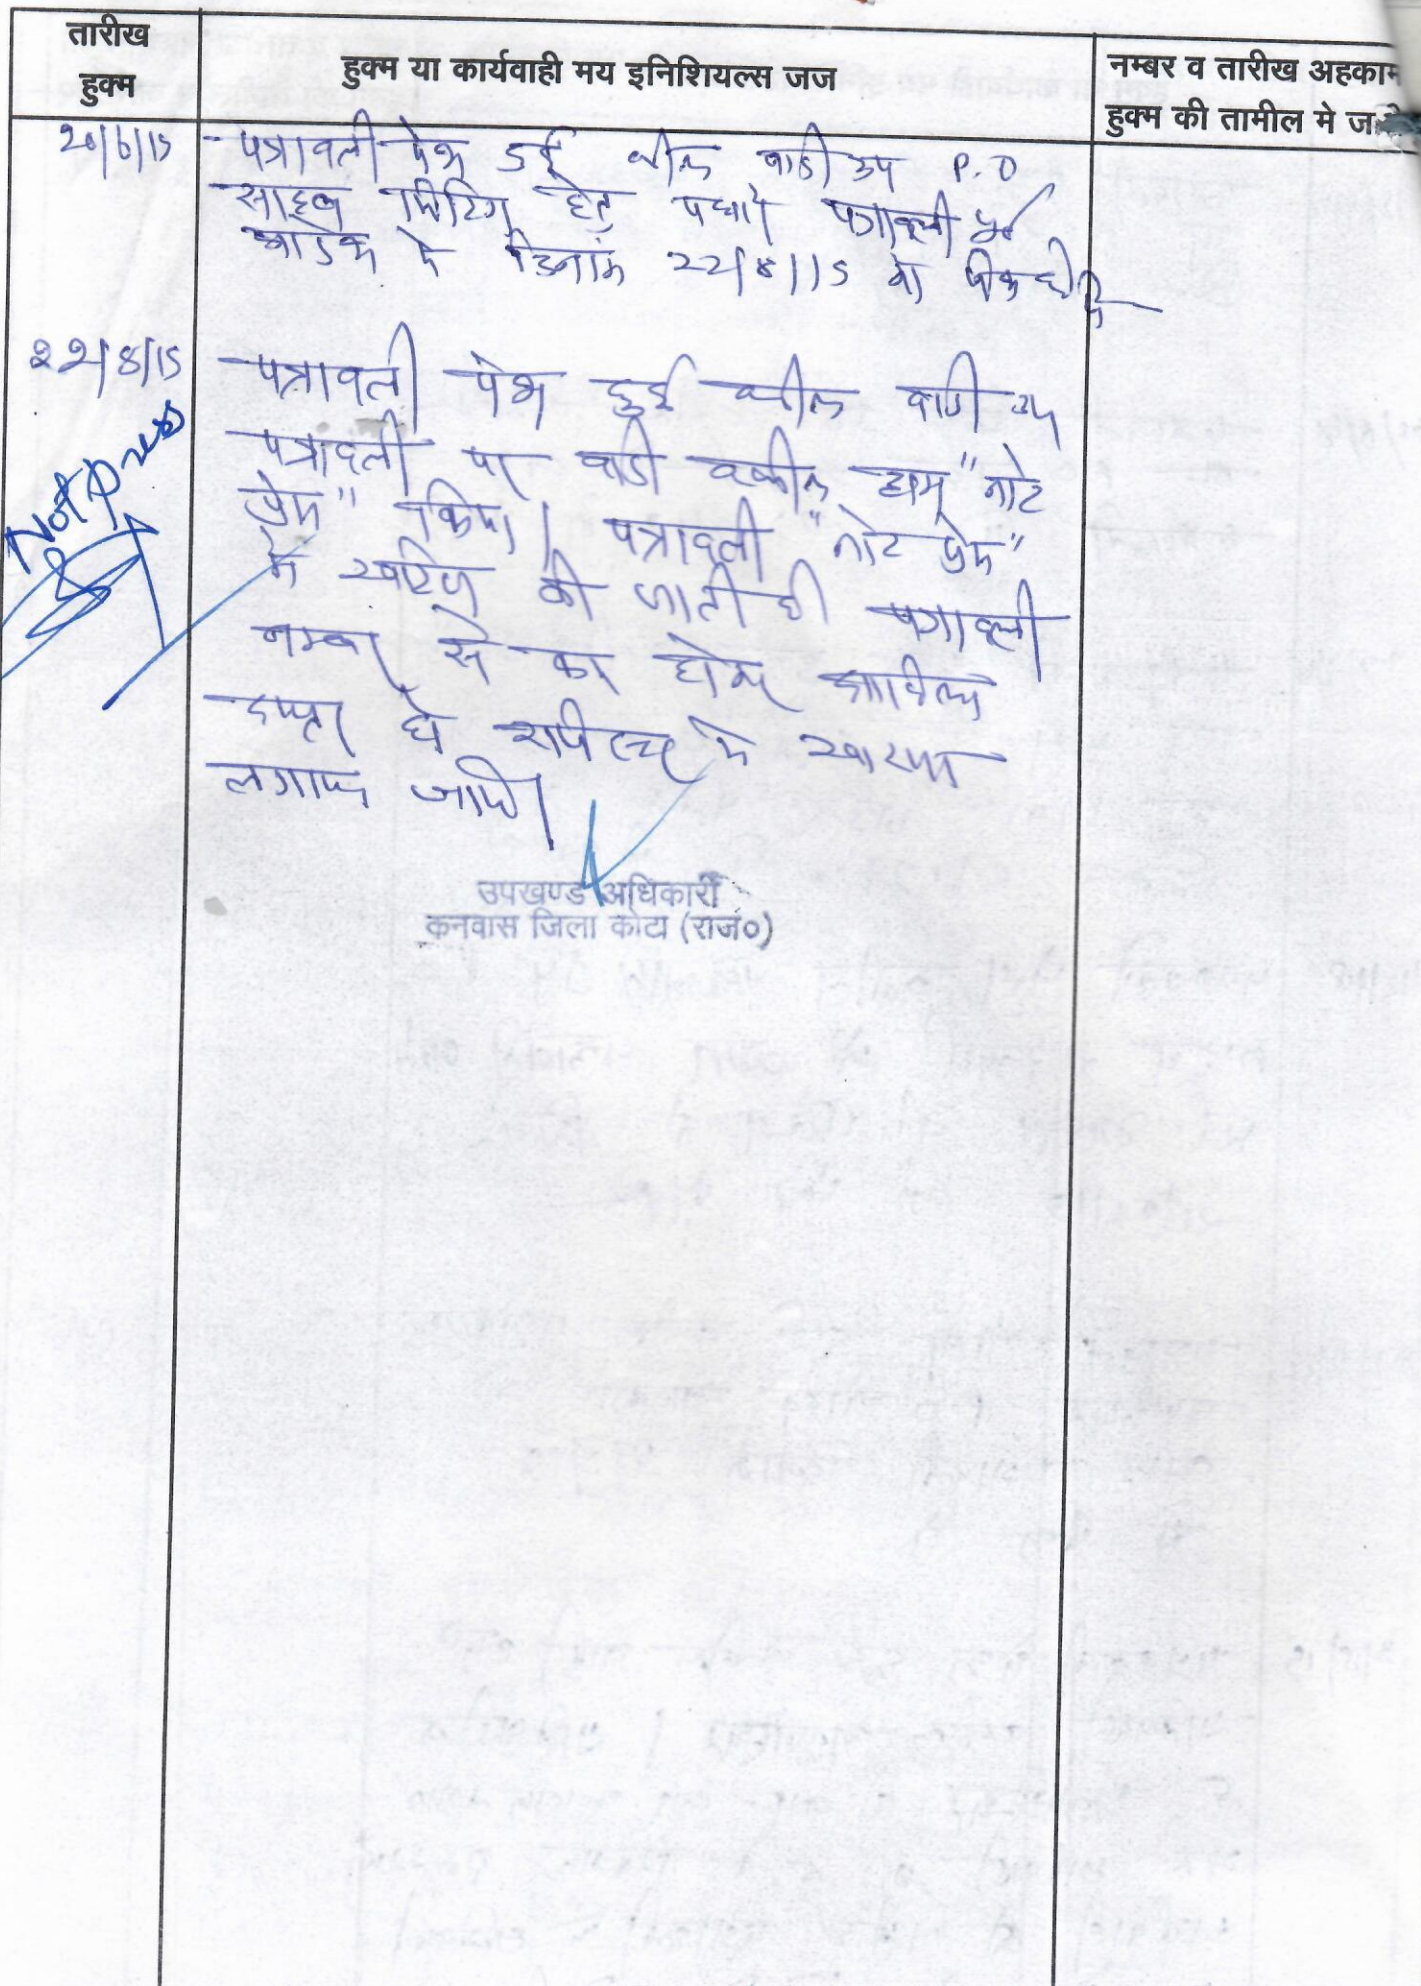 तारीख
हुक्म
हुक्म या कार्यवाही मय इनिशियल्स जज
नम्बर व तारीख अहकाम
हुक्म की तामील मे ज
20/6/15 पत्रावली पेश हुई वकील वादी उप P.O
साहब मिटिंग हेतु पधारे पत्रावली पूर्व
आदेश में दिनांक 22/8/15 को पेश हो
22/8/15 पत्रावली पेश हुई वकील वादी उप
Not Press
पत्रावली पर वादी वकील द्वारा "नोट
प्रेस" किया। पत्रावली "नोट प्रेस"
में खारिज की जाती है पत्रावली
नम्बर से कम होकर दाखिल
दफ्तर हो राजस्टर में
लगाया जावे।
उपखण्ड अधिकारी
कनवास जिला कोटा (राज०)